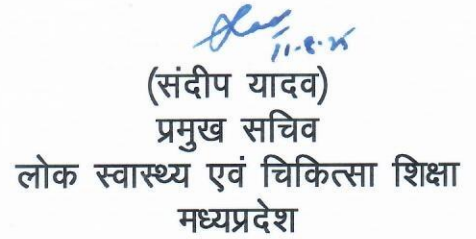 11-8-25
(संदीप यादव)
प्रमुख सचिव
लोक स्वास्थ्य एवं चिकित्सा शिक्षा
मध्यप्रदेश